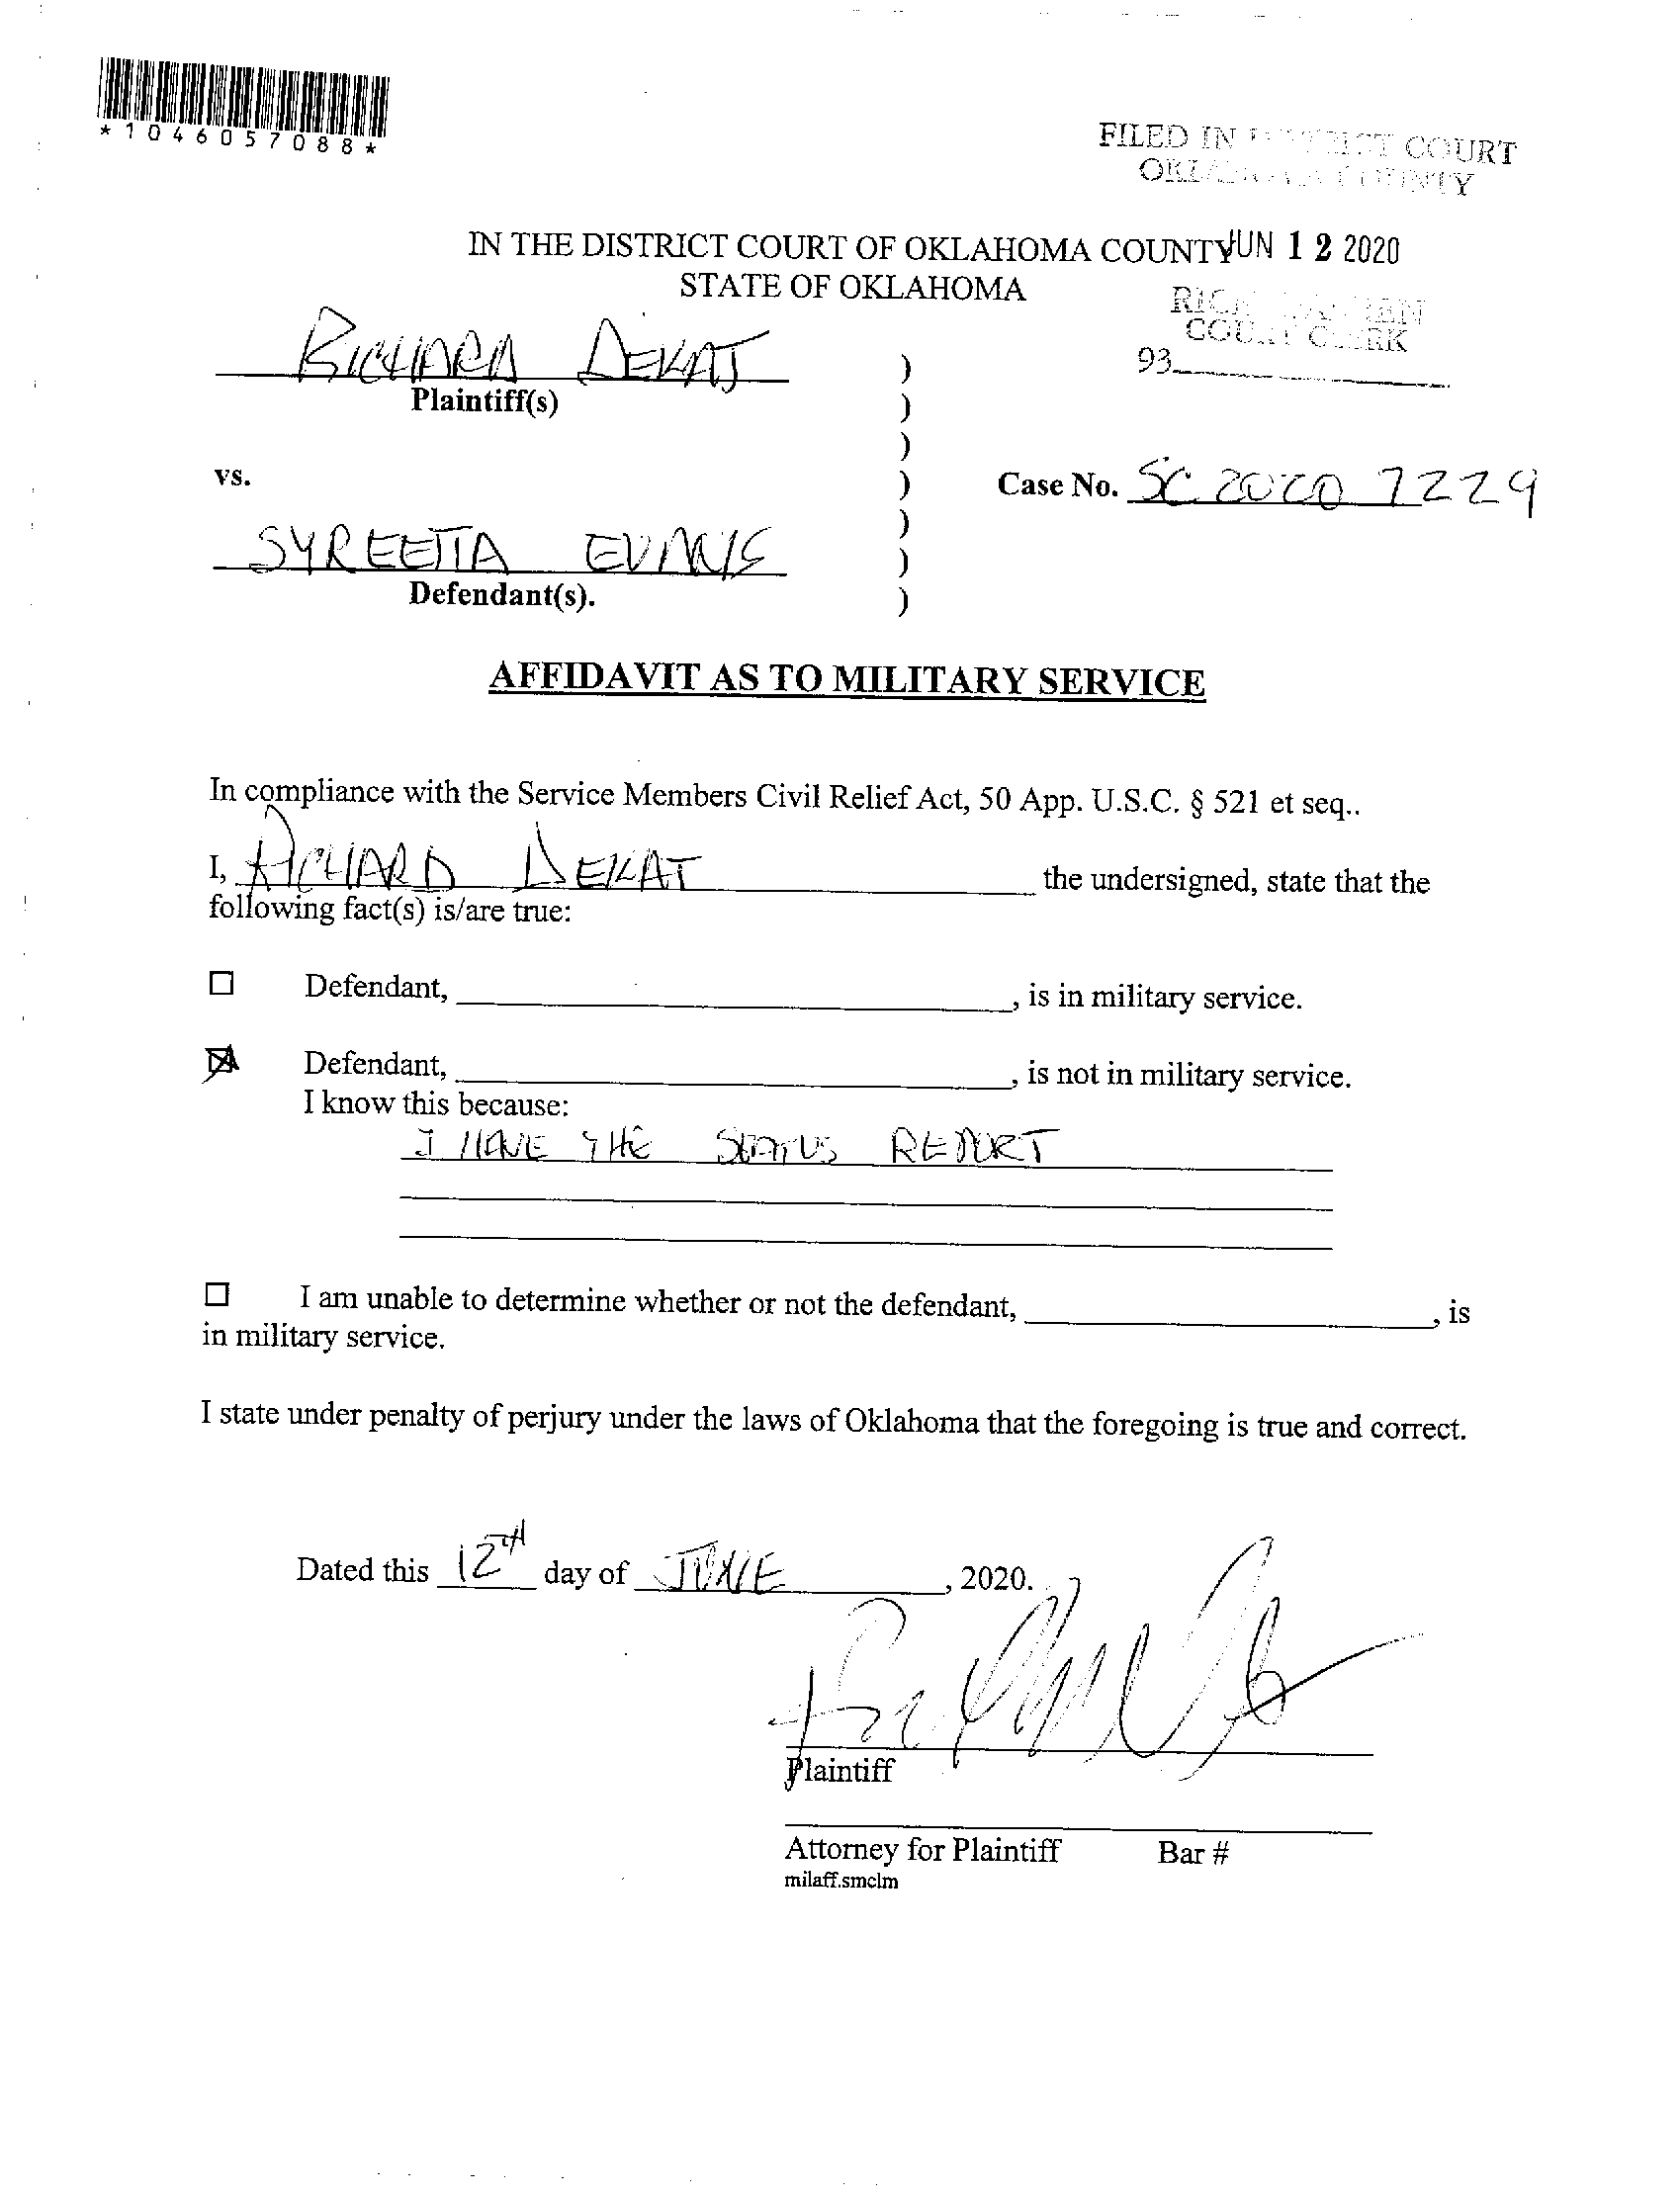 *1046057088*
FILED IN DISTRICT COURT
OKLAHOMA COUNTY
IN THE DISTRICT COURT OF OKLAHOMA COUNTY JUN 12 2020
STATE OF OKLAHOMA
COURT CLERK
93
RICHARD DEKAT )
Plaintiff(s) )
)
vs. ) Case No. SC 2020 7229
)
SYREETTA EVANS )
Defendant(s). )
AFFIDAVIT AS TO MILITARY SERVICE
In compliance with the Service Members Civil Relief Act, 50 App. U.S.C. § 521 et seq..
I, RICHARD DEKAT the undersigned, state that the
following fact(s) is/are true:
☐ Defendant, , is in military service.
☒ Defendant, , is not in military service.
I know this because:
I HAVE THE STATUS REPORT
☐ I am unable to determine whether or not the defendant, , is
in military service.
I state under penalty of perjury under the laws of Oklahoma that the foregoing is true and correct.
Dated this 12TH day of JUNE , 2020.
Plaintiff
Attorney for Plaintiff Bar #
milaff.smclm